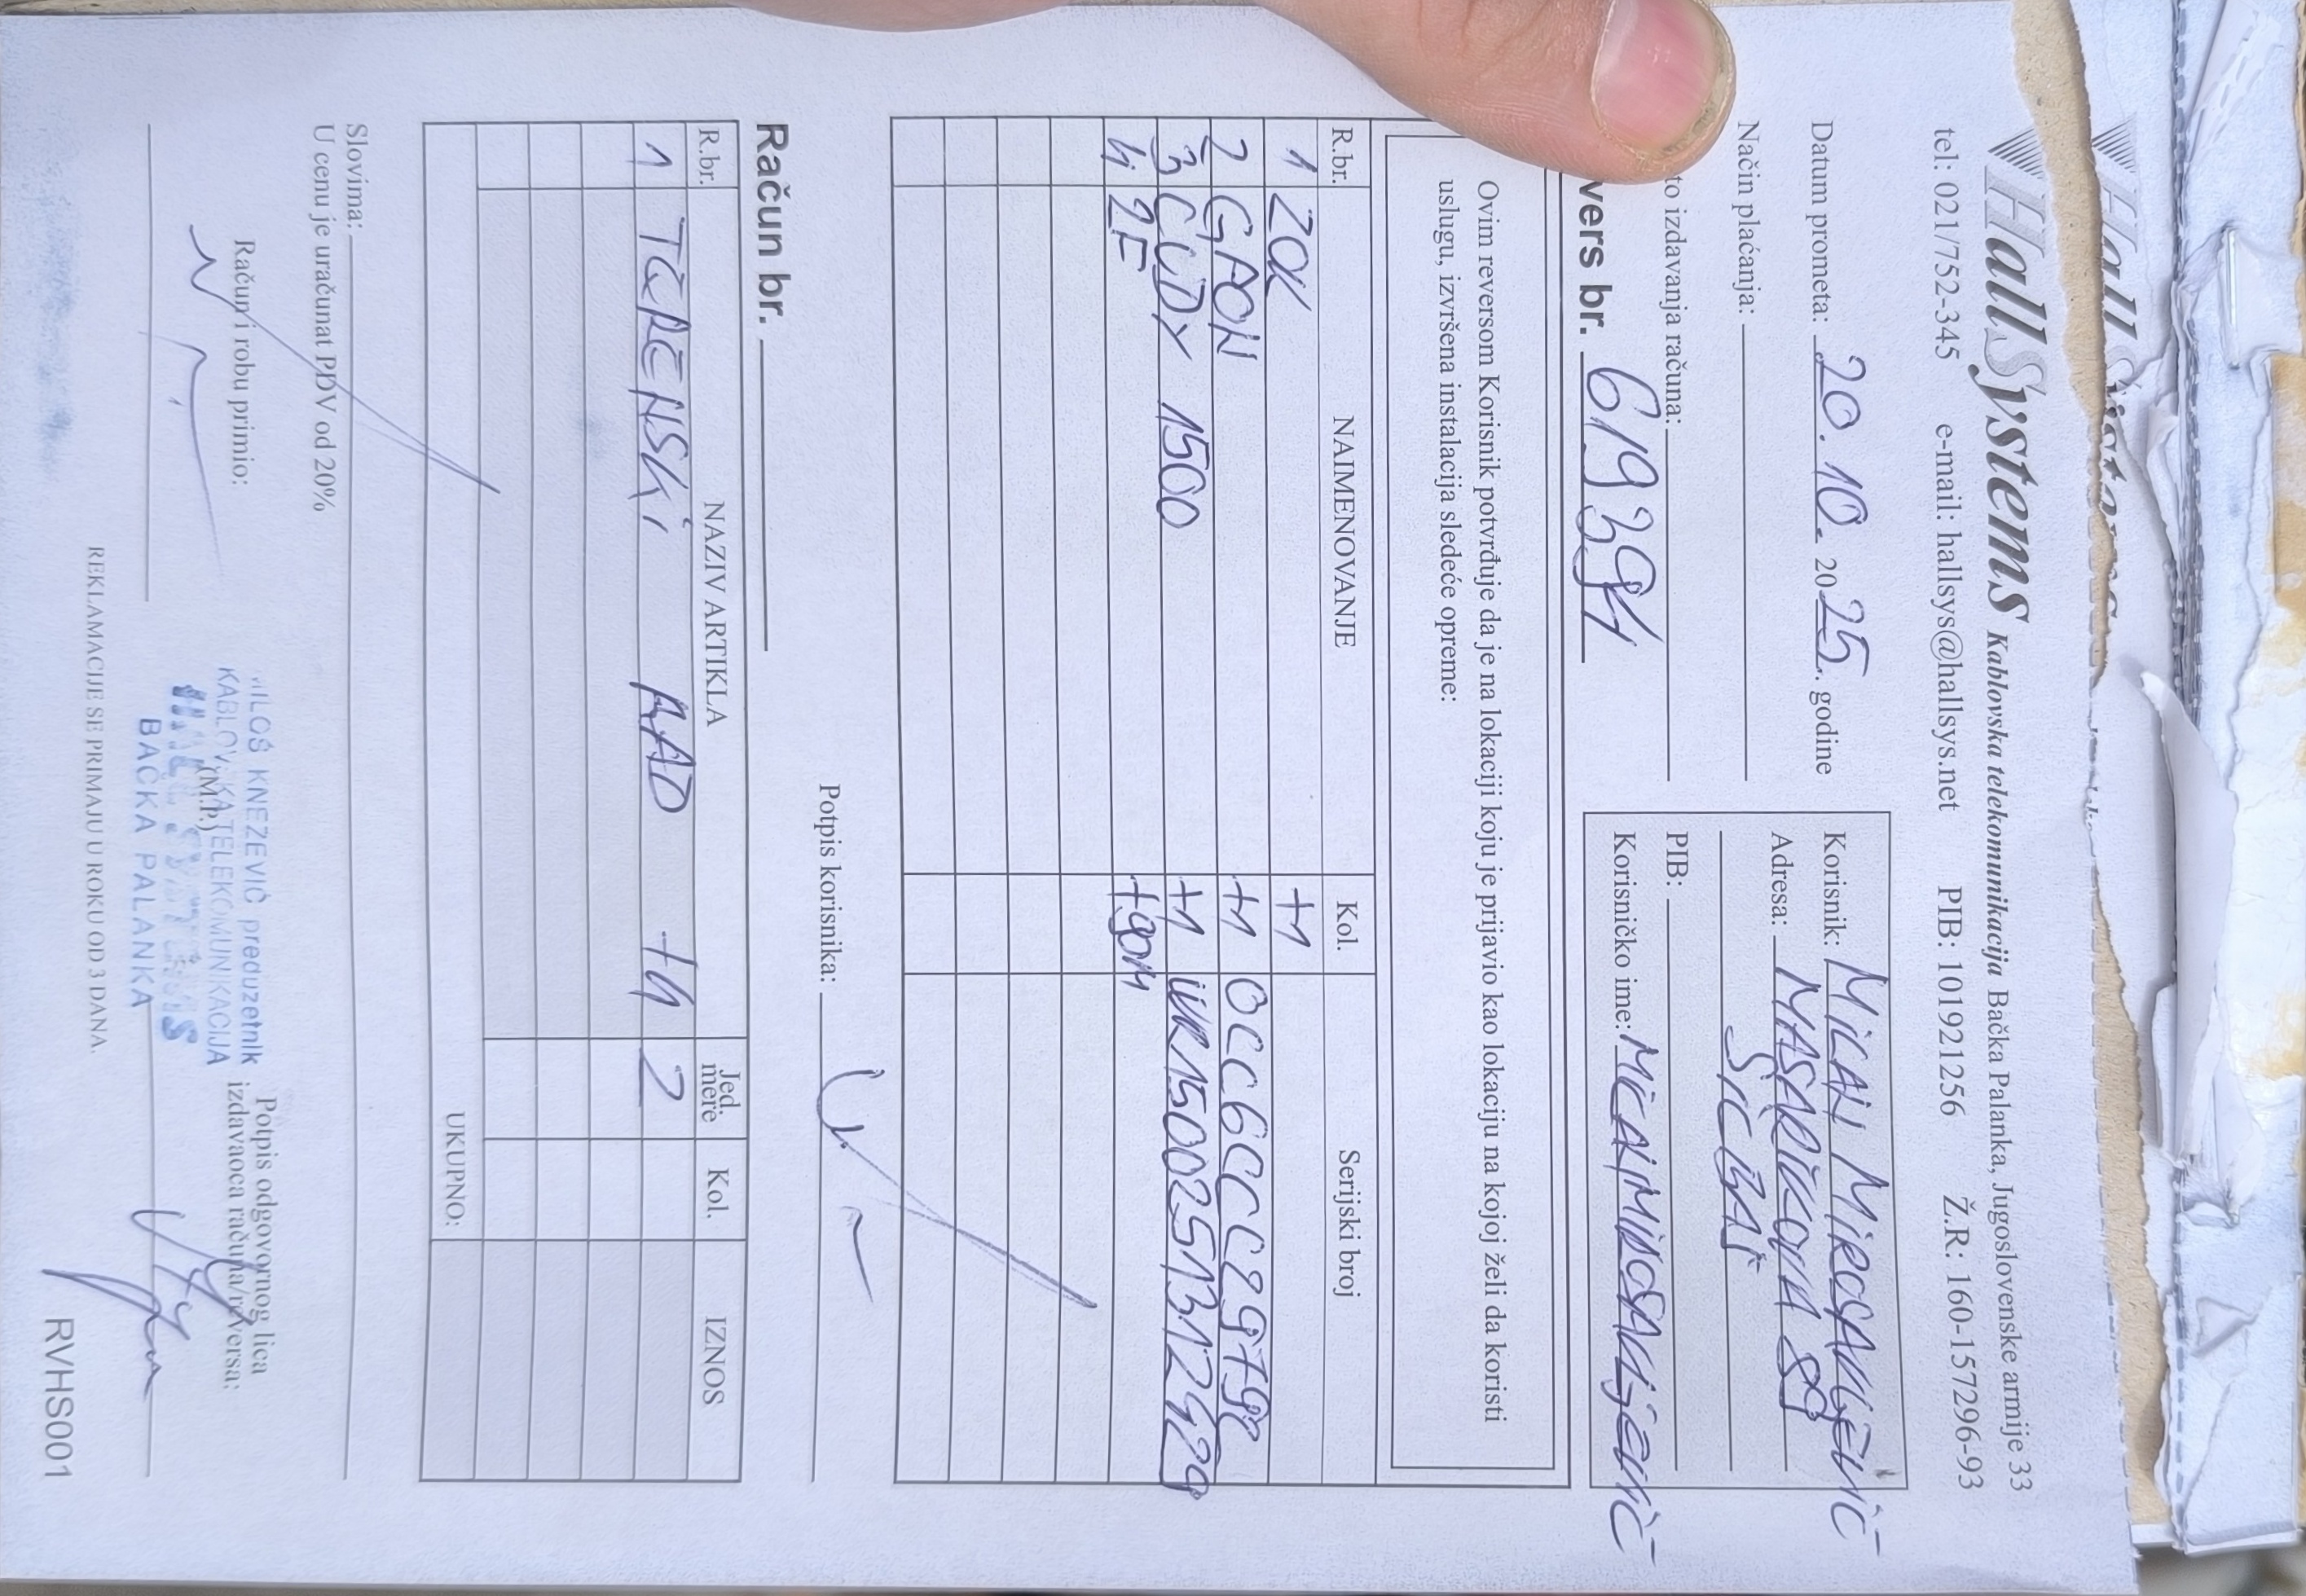 HallSystems Kablovska telekomunikacija Bačka Palanka, Jugoslovenske armije 33
tel: 021/752-345 e-mail: hallsys@hallsys.net PIB: 101921256 Ž.R: 160-157296-93
Datum prometa: 20.10. 2025. godine
Način plaćanja:
to izdavanja računa:
vers br. 619394
Korisnik: MiLAN MiROSAVLJEViĆ
Adresa: MASARiKOVA 89
SiLBAŠ
PIB:
Korisničko ime: MiLANMiROSAVLJEViĆ
Ovim reversom Korisnik potvrđuje da je na lokaciji koju je prijavio kao lokaciju na kojoj želi da koristi
uslugu, izvršena instalacija sledeće opreme:
R.br. NAIMENOVANJE Kol. Serijski broj
1 ZOK +1
2 GPON +1 OCC6CCC29798
3 CUDY 1500 +1 WR15002513124429
4 2F +90M
Potpis korisnika:
Račun br.
R.br. NAZIV ARTIKLA Jed. mere Kol. IZNOS
1 TERENSKi RAD +4 2
UKUPNO:
Slovima:
U cenu je uračunat PDV od 20%
Račun i robu primio:
MILOŠ KNEŽEVIĆ preduzetnik
KABLOVSKA TELEKOMUNIKACIJA
HALL SYSTEMS
BAČKA PALANKA
(M.P.)
Potpis odgovornog lica
izdavaoca računa/reversa:
REKLAMACIJE SE PRIMAJU U ROKU OD 3 DANA.
RVHS001